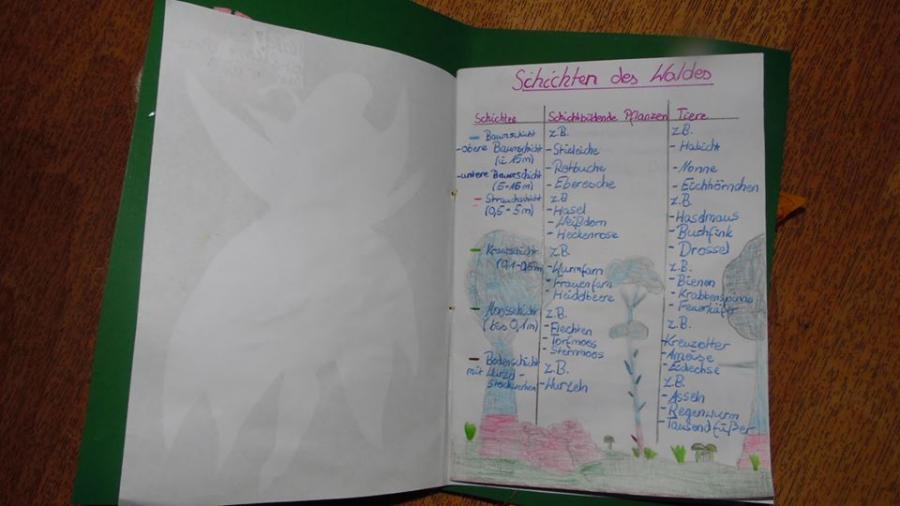 Schichten des Waldes
Schichten Schichtbildende Pflanzen Tiere
- Baumschicht z.B. z.B.
- obere Baumschicht - Stieleiche - Habicht
(ü 15m)
- Rotbuche - Nonne
- untere Baumschicht
(5-15m) - Eberesche - Eichhörnchen
- Strauchschicht z.B. z.B.
(0,5-5m) - Hasel - Haselmaus
- Weißdorn - Buchfink
- Heckenrose - Drossel
- Krautschicht z.B. z.B.
(0,1-0,5m) - Wurmfarn - Bienen
- Frauenfarn - Krabbenspinne
- Heidelbeere - Feuerkäfer
- Moosschicht z.B. z.B.
(bis 0,1m) - Flechten - Kreuzotter
- Torfmoos - Ameise
- Sternmoos - Eidechse
- Bodenschicht z.B. z.B.
mit Wurzel- - Wurzeln - Asseln
stockwerken - Regenwurm
- Tausendfüßer